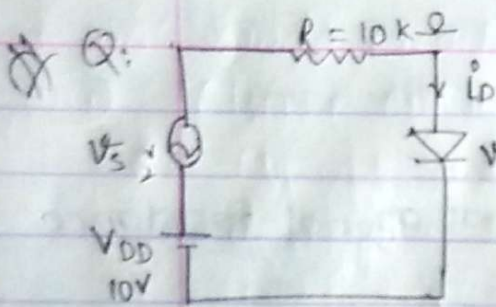 Q:
R = 10 kΩ
iD
Vs
V
VDD
10V